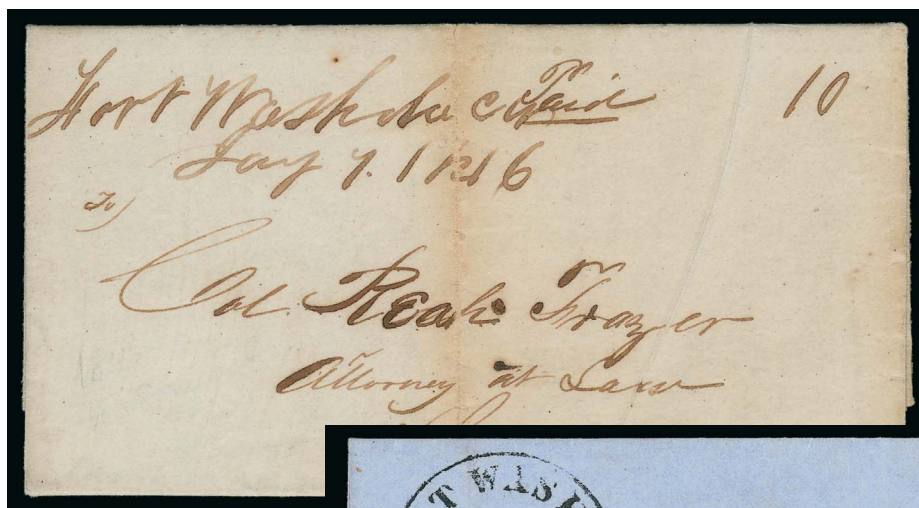 Fort Washita C.N. Paid 10
Jany 7. 1846
To)
Col. Reah Frazer
Attorney at Law
T WASH